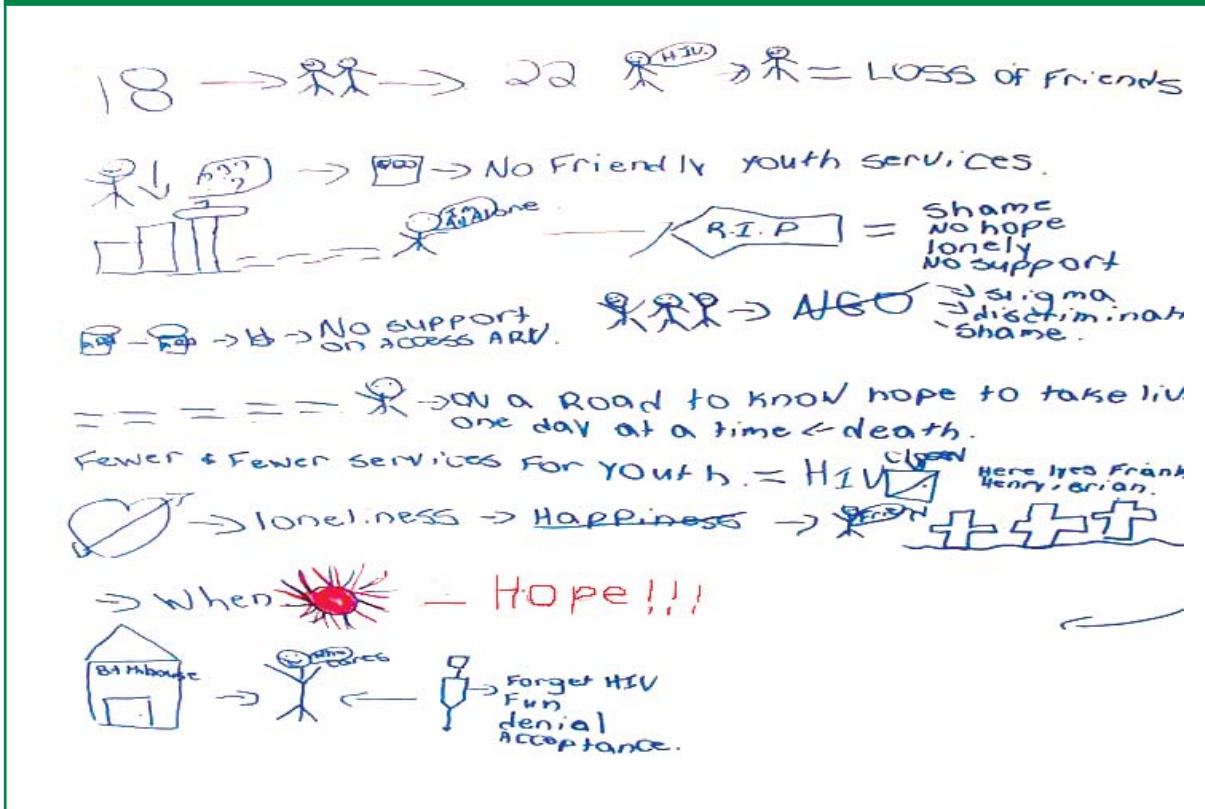 18 22 HIV. = LOSS OF Friends
??? No Friendly youth services.
I'm Alone R.I.P = Shame
No hope
lonely
No support
No support
on access ARV.
NGO stigma
discriminat
shame.
on a Road to know hope to take liv
one day at a time death.
Fewer & Fewer services for youth. = HIV
Here lyes Frank
Henry, Brian.
loneliness Happiness
When Hope!!!
Bathhouse who cares Forget HIV
Fun
denial
Acceptance.